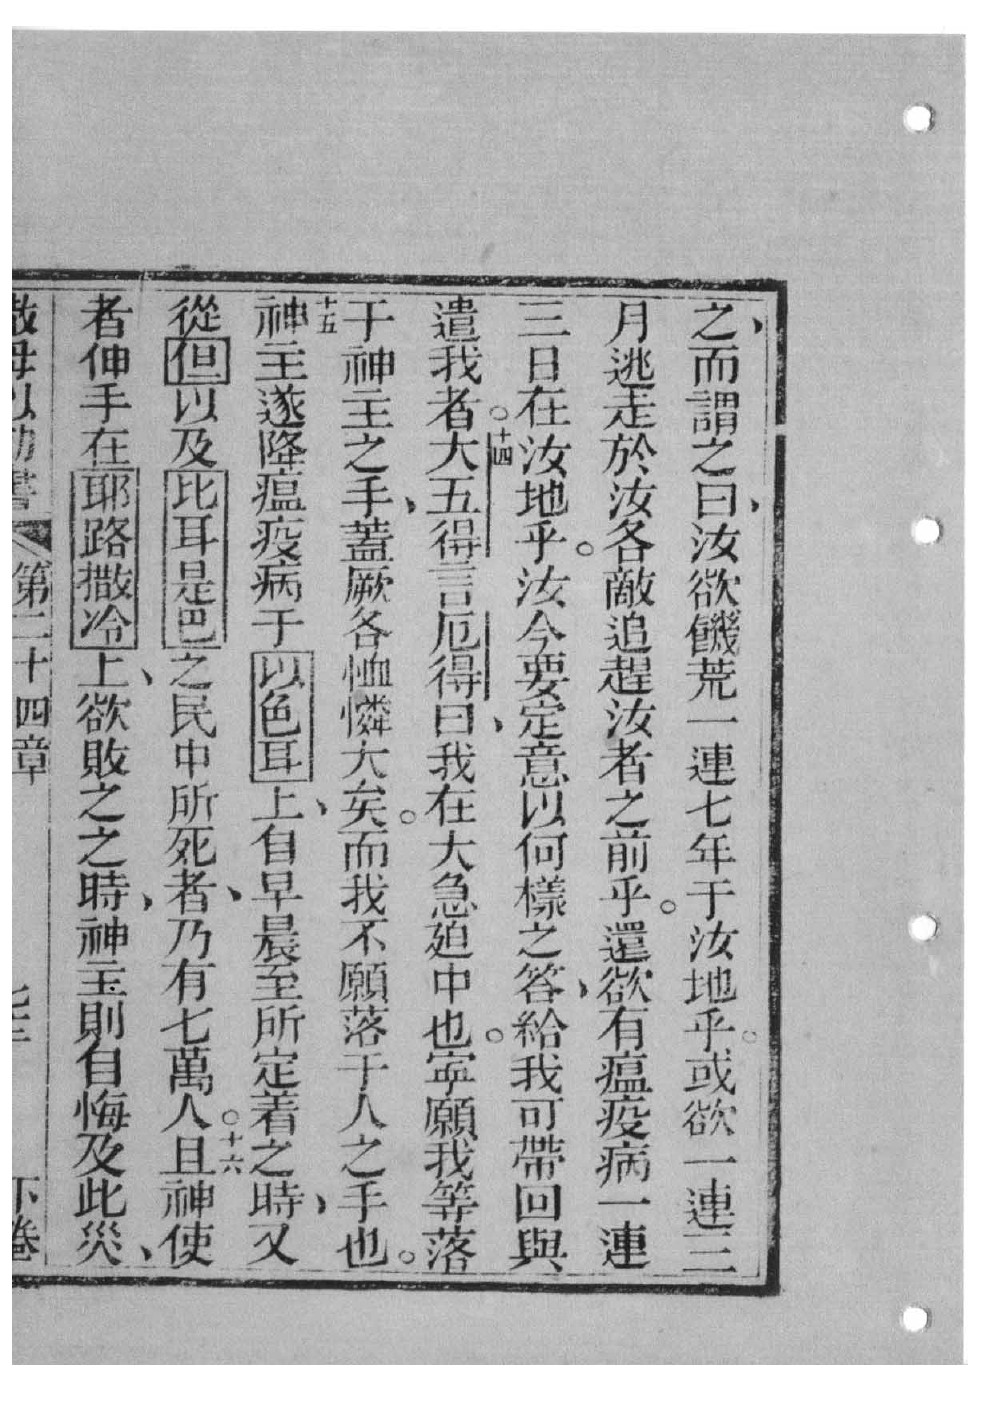 之、而謂之曰、汝欲饑荒一連七年于汝地乎。或欲一連三
月逃走於汝各敵追趕汝者之前乎。還欲有瘟疫病一連
三日在汝地乎。汝今要定意以何樣之答、給我可帶回與
遣我者。十四大五得言厄得曰、我在大急迫中也。寧願我等落
于神主之手、蓋厥各恤憐大矣。而我不願落于人之手也。
十五神主遂降瘟疫病于以色耳上、自早晨至所定着之時、又
從但以及比耳是巴之民中所死者、乃有七萬人。十六且神使
者伸手在耶路撒冷上、欲敗之之時、神主則自悔及此災、
書 第二十四章 下卷